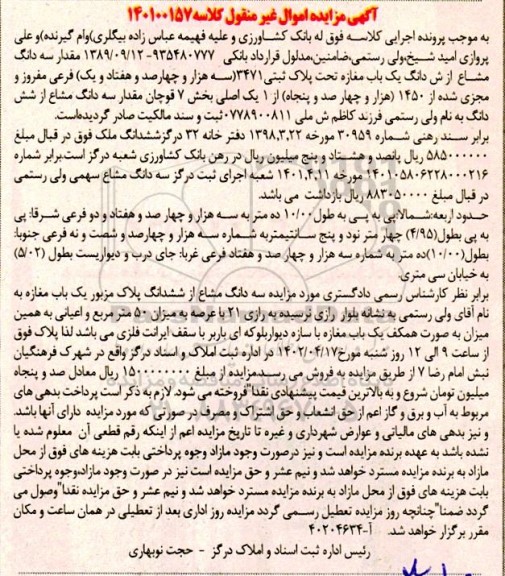 آگهی مزایده اموال غیر منقول کلاسه ۱۴۰۱۰۰۱۵۷
به موجب پرونده اجرایی کلاسه فوق له بانک کشاورزی و علیه فهیمه عباس زاده بیگلری(وام گیرنده)و علی
پروازی امید شیخ،ولی رستمی،ضامنین،مدلول قرارداد بانکی ۹۳۵۴۸۰۷۷۷- ۱۳۸۹/۰۹/۱۲ مقدار سه دانگ
مشاع از ش دانگ یک باب مغازه تحت پلاک ثبتی۳۴۷۱(سه هزار و چهارصد و هفتاد و یک) فرعی مفروز و
مجزی شده از ۱۴۵۰ (هزار و چهار صد و پنجاه) از ۱ یک اصلی بخش ۷ قوچان مقدار سه دانگ مشاع از شش
دانگ به نام ولی رستمی فرزند کاظم ش ملی ۰۷۷۸۹۰۰۸۱۱ثبت و سند مالکیت صادر گردیده‌است.
برابر سند رهنی شماره ۳۰۹۵۹ مورخه ۱۳۹۸,۳,۲۲ دفتر خانه ۳۲ درگزششدانگ ملک فوق در قبال مبلغ
۵۸۵۰۰۰۰۰۰ ریال پانصد و هشتاد و پنج میلیون ریال در رهن بانک کشاورزی شعبه درگز است.برابر شماره
۱۴۰۱۰۵۸۰۶۲۲۸۰۰۰۲۱۶ مورخه ۱۴۰۱,۴,۱۱ شعبه اجرای ثبت درگز سه دانگ مشاع سهمی ولی رستمی
در قبال مبلغ ۸۸۳۰۵۰۰۰۰ ریال بازداشت می باشد.
حدود اربعه:شمالا:پی به پی به طول ۱۰/۰۰ ده متر به سه هزار و چهار صد و هفتاد و دو فرعی شرقا: پی
به پی بطول(۴/۹۵) چهار متر نود و پنج سانتیمتربه شماره سه هزار و چهارصد و شصت و نه فرعی جنوبا:
بطول(۱۰/۰۰)ده متر به شماره سه هزار و چهار صد و هفتاد فرعی غربا: جای درب و دیواریست بطول (۵/۰۲)
به خیابان سی متری.
برابر نظر کارشناس رسمی دادگستری مورد مزایده سه دانگ مشاع از ششدانگ پلاک مزبور یک باب مغازه به
نام آقای ولی رستمی به نشانه بلوار رازی نرسیده به رازی ۲۱ با عرصه به میزان ۵۰ متر مربع و اعیانی به همین
میزان به صورت همکف یک باب مغازه با سازه دیواربلوکه ای باربر با سقف ایرانت فلزی می باشد لذا پلاک فوق
از ساعت ۹ الی ۱۲ روز شنبه مورخ۱۴۰۲/۰۴/۱۷ در اداره ثبت املاک و اسناد درگز واقع در شهرک فرهنگیان
نبش امام رضا ۷ از طریق مزایده به فروش می رسد.مزایده از مبلغ ۱۵۰۰۰۰۰۰۰۰ ریال معادل صد و پنجاه
میلیون تومان شروع و به بالاترین قیمت پیشنهادی نقدا"فروخته می شود. لازم به ذکر است پرداخت بدهی های
مربوط به آب و برق و گاز اعم از حق انشعاب و حق اشتراک و مصرف در صورتی که مورد مزایده دارای آنها باشد.
و نیز بدهی های مالیاتی و عوارض شهرداری و غیره تا تاریخ مزایده اعم از اینکه رقم قطعی آن معلوم شده یا
نشده باشد به عهده برنده مزایده است و نیز درصورت وجود مازاد وجوه پرداختی بابت هزینه های فوق از محل
مازاد به برنده مزایده مسترد خواهد شد و نیم عشر و حق مزایده است نیز در صورت وجود مازاد،وجوه پرداختی
بابت هزینه های فوق از محل مازاد به برنده مزایده مسترد خواهد شد و نیم عشر و حق مزایده نقدا"وصول می
گردد ضمنا"چنانچه روز مزایده تعطیل رسمی گردد مزایده روز اداری بعد از تعطیلی در همان ساعت و مکان
مقرر برگزار خواهد شد. آ-۴۰۲۰۴۶۳۴
رئیس اداره ثبت اسناد و املاک درگز - حجت نوبهاری